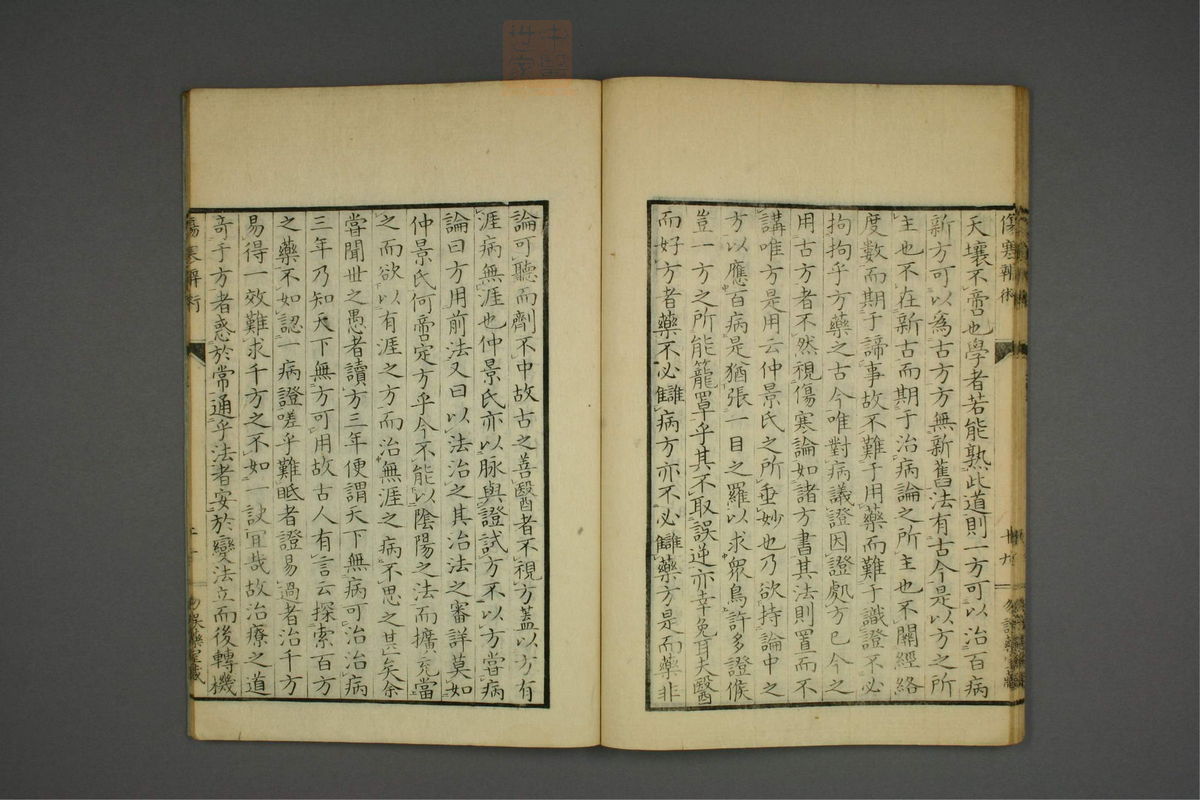 天壤不啻也學者若能熟此道則一方可以治百病
新方可以為古方方無新舊法有古今是以方之所
主也不在新古而期于治病論之所主也不關經絡
度數而期于諦事故不難于用藥而難于識證不必
拘拘乎方藥之古今唯對病議證因證処方已今之
用古方者不然視傷寒論如諸方書其法則置而不
講唯方是用云仲景氏之所垂妙也乃欲持論中之
方以應百病是猶張一目之羅以求眾鳥許多證候
豈一方之所能籠罩乎其不取誤逆亦幸免耳夫醫
而好方者藥不必讎病方亦不必讎藥方是而藥非
論可聽而劑不中故古之善醫者不視方蓋以方有
涯病無涯也仲景氏亦以脉與證試方不以方當病
論曰方用前法又曰以法治之其治法之審詳莫如
仲景氏何啻定方乎今不能以陰陽之法而擴充當
之而欲以有涯之方而治無涯之病不思之甚矣余
嘗聞世之愚者讀方三年便謂天下無病可治治病
三年乃知天下無方可用故古人有言云探索百方
之藥不如認一病證嗟乎難眂者證易過者治千方
易得一效難求千方之不如一訣宜哉故治療之道
奇于方者惑於常通乎法者安於變法立而後轉機
傷寒辨術